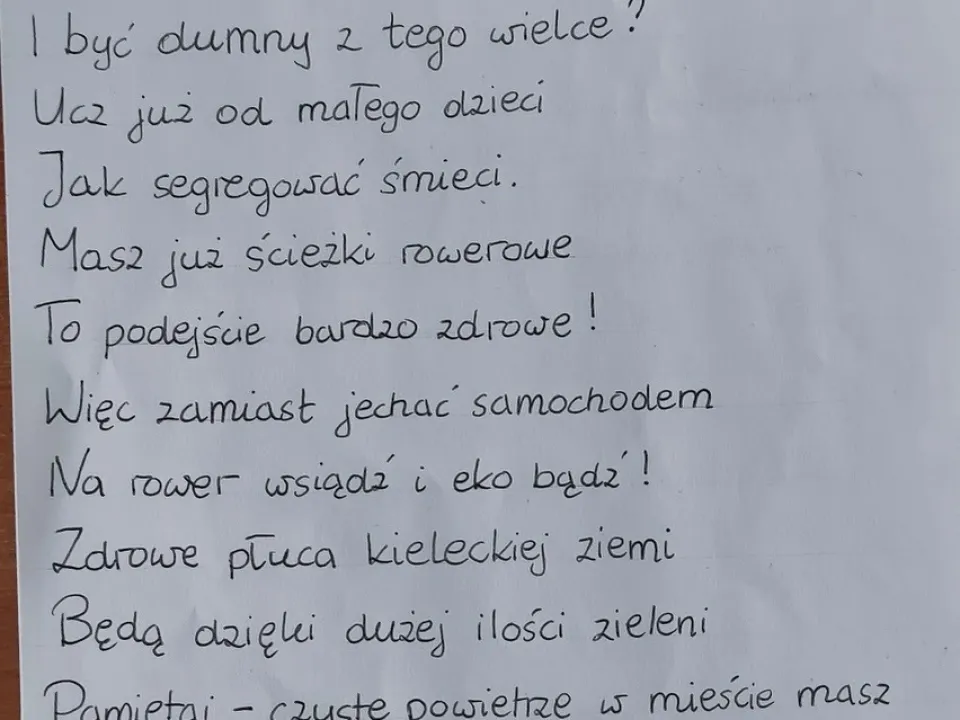 I być dumny z tego wielce?
Ucz już od małego dzieci
Jak segregować śmieci.
Masz już ścieżki rowerowe
To podejście bardzo zdrowe!
Więc zamiast jechać samochodem
Na rower wsiądź i eko bądź!
Zdrowe płuca kieleckiej ziemi
Będą dzięki dużej ilości zieleni
Pamiętaj - czyste powietrze w mieście masz